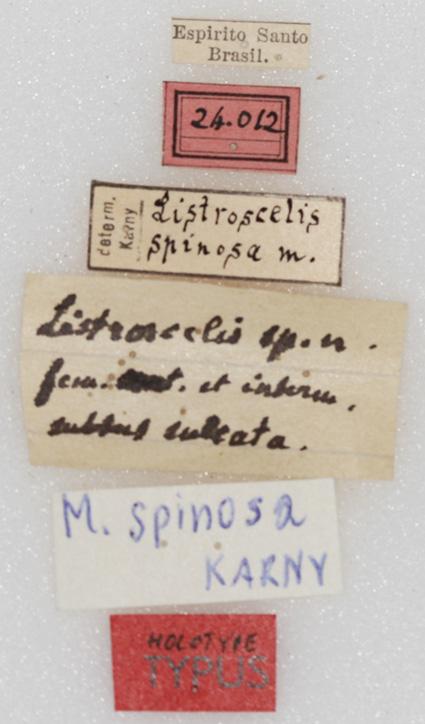 Espirito Santo
Brasil.
24.012
determ.
Karny
Listroscelis
spinosa m.
Listroscelis sp. n.
fem. et interm.
subtus sulcata.
M. spinosa
KARNY
HOLOTYPE
TYPUS